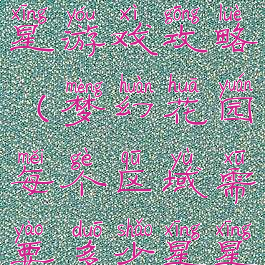 xīng yóu xì gōng lüè
星游戏攻略
mèng huàn huā yuán
（梦幻花园
měi gè qū yù xū
每个区域需
yào duō shǎo xīng xīng
要多少星星